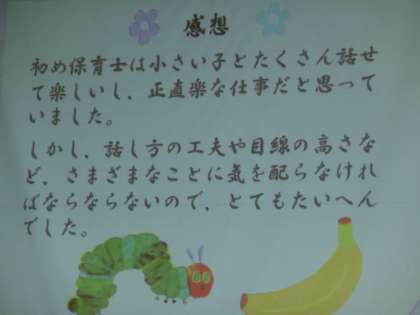 感想
初め保育士は小さい子とたくさん話せ
て楽しいし、正直楽な仕事だと思って
いました。
しかし、話し方の工夫や目線の高さな
ど、さまざまなことに気を配らなけれ
ばならならないので、とてもたいへん
でした。